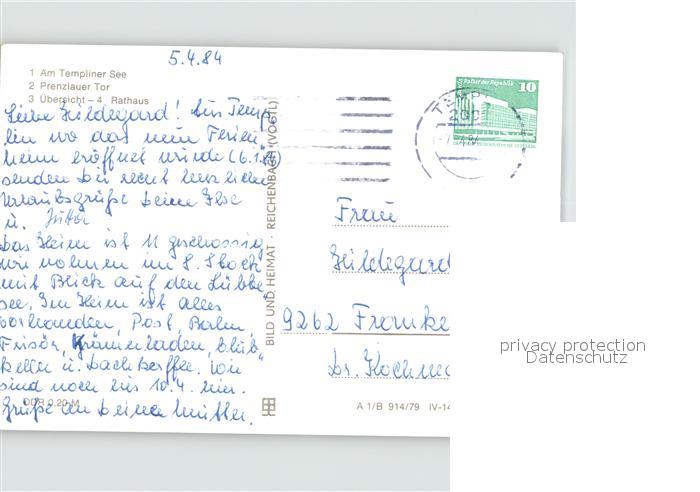 5.4.84
1 Am Templiner See
2 Prenzlauer Tor
3 Übersicht – 4 Rathaus
Liebe Hildegard! Aus Temp
lin wo das neue Ferien
heim eröffnet wurde (6.1.84)
senden Dir recht herzliche
Urlaubsgrüße Deine Ilse
u. Jutta
Das Heim ist 11 geschossig
wir wohnen im 8. Stock
mit Blick auf den Lübbe
see. Im Heim ist alles
vorhanden, Post,
Frisör, Krämerladen, Club,
Keller u. Dachkaffee. Wir
sind noch bis 10.4. hier.
Grüße an Deine Mutter.
DDR 0,20 M
BILD UND HEIMAT · REICHENBACH (VOGTL)
A 1/B 914/79 IV-14
Palast der Republik
10
TEMPL
209
Frau
Hildegard
9262 Franke
Dr.
privacy protection
Datenschutz